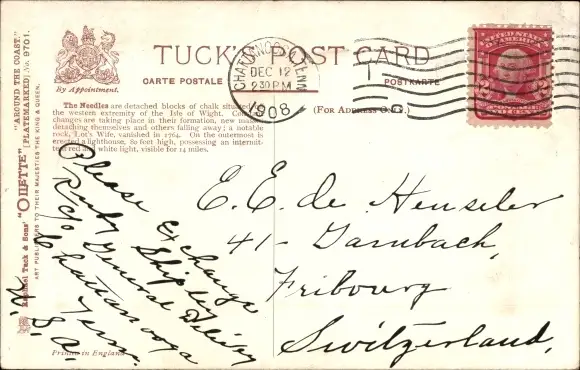 TUCK'S POST CARD
By Appointment.
CARTE POSTALE
POSTKARTE
(FOR ADDRESS ONLY.)
CHATTANOOGA, TENN
DEC 12
2 30 PM
1908
The Needles are detached blocks of chalk situated
the western extremity of the Isle of Wight.
changes are taking place in their formation, new
detaching themselves and others falling away; a notable
rock, Lot's Wife, vanished in 1764. On the outermost is
erected a lighthouse, 80 feet high, possessing an intermit-
tent red and white light, visible for 14 miles.
Raphael Tuck & Sons' "OILETTE" "AROUND THE COAST."
[PLATEMARKED] No. 9701.
ART PUBLISHERS TO THEIR MAJESTIES THE KING & QUEEN.
Please Exchange
Ruby Shipley
c/o General Delivery
Chattanooga
Tenn.
U. S. A.
Printed in England
E. E. de Henseler
41 - Gambach,
Fribourg
Switzerland,